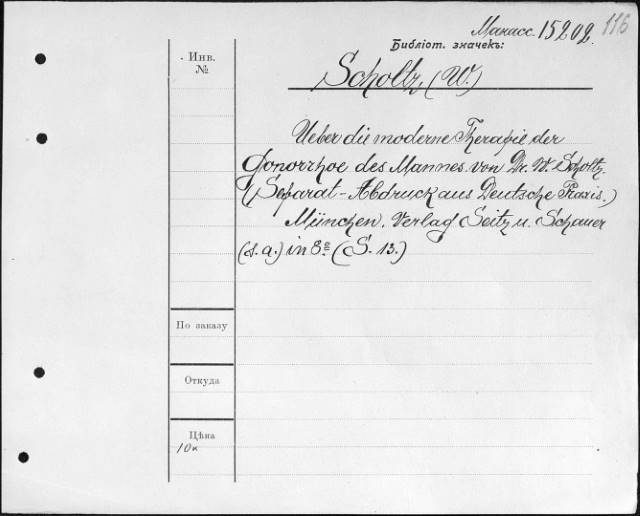 116
Манасс. 15202.
Библіот. значекъ:
Инв.
№
Scholtz, (W.)
Ueber die moderne Therapie der
Gonorrhoe des Mannes von Dr. W. Scholtz.
(Separat-Abdruck aus Deutsche Praxis.)
München. Verlag Seitz u. Schauer
(s. a.) in 8º (S. 13.)
По заказу
Откуда
Цѣна
10к